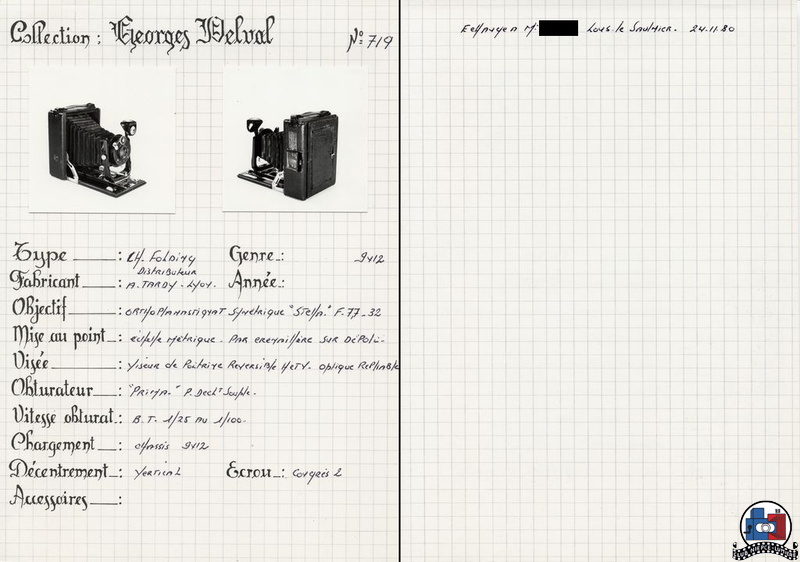 Collection: Georges Delval Nº 719
Type : CH. Folding Genre : 9x12
Distributeur
Fabricant : A. TARDY - Lyon. Année :
Objectif : ORTHOPlANASTigMAT Symétrique "Stella" F. 7.7 - 32
Mise au point : échelle Métrique. PAR crémaillère SUR DÉPOLI-
Visée : Viseur de Poitrine Reversible H et V. optique Repliable
Obturateur : "PRIMA." P. Dectr Souple.
Vitesse obturat : B.T. 1/25 AU 1/100.
Chargement : châssis 9x12
Décentrement : Vertical Ecrou : Congrès 2
Accessoires :
M. Lons le Saulnier. 24.11.80